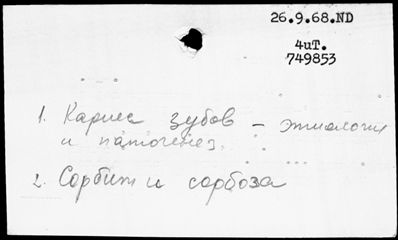 26.9.68.ND
4иТ.
749853
1. Кариес зубов – этиология
и патогенез.
2. Сорбит и сорбоза